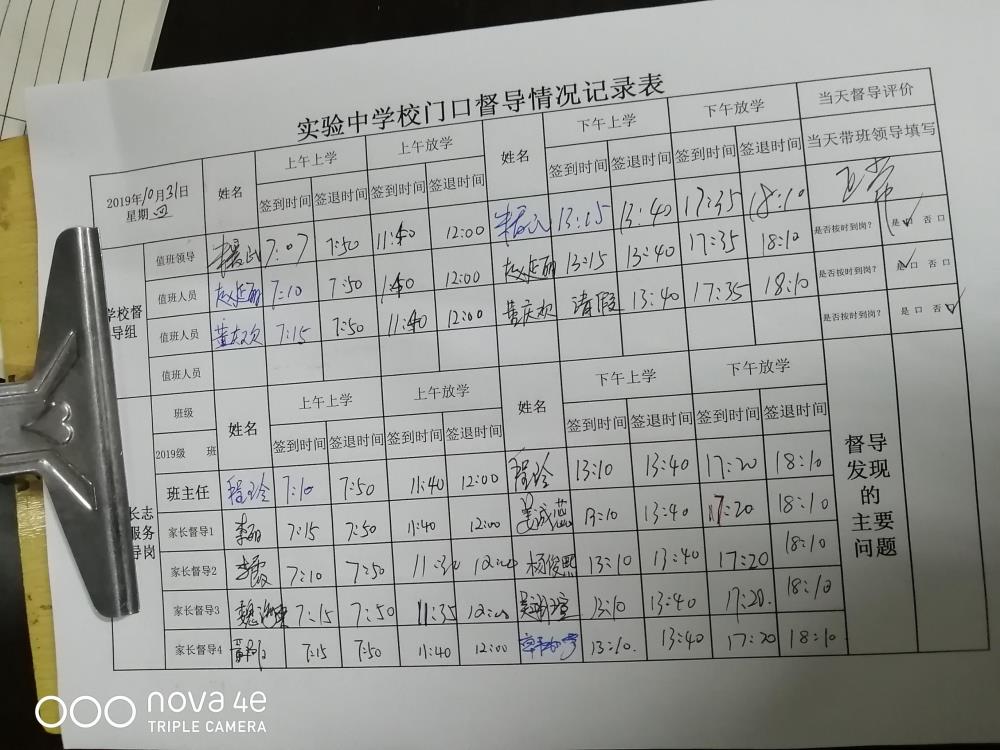 实验中学校门口督导情况记录表
2019年10月31日
星期四
姓名 上午上学 上午放学 姓名 下午上学 下午放学 当天督导评价
签到时间 签退时间 签到时间 签退时间 签到时间 签退时间 签到时间 签退时间 当天带班领导填写
学校督
导组
值班领导 7:07 7:50 11:40 12:00 13:15 13:40 17:35 18:10 正常
是否按时到岗? 是 口 否 口
值班人员 赵延丽 7:10 7:50 11:40 12:00 赵延丽 13:15 13:40 17:35 18:10 是否按时到岗? 是 口 否 口
值班人员 黄庆欢 7:15 7:50 11:40 12:00 黄庆欢 请假 13:40 17:35 18:10 是否按时到岗? 是 口 否 口
值班人员
班级 姓名 上午上学 上午放学 姓名 下午上学 下午放学
2019级 班 签到时间 签退时间 签到时间 签退时间 签到时间 签退时间 签到时间 签退时间
长志
服务
导岗
班主任 程玲 7:10 7:50 11:40 12:00 程玲 13:10 13:40 17:20 18:10
家长督导1 李丽 7:15 7:50 11:40 12:00 13:10 13:40 17:20 18:10
家长督导2 李霞 7:10 7:50 12:00 杨俊熙 13:10 13:40 17:20 18:10
家长督导3 7:15 7:50 11:35 12:00 13:10 13:40 17:20. 18:10
家长督导4 7:15 7:50 11:40 12:00 13:10. 13:40 17:20 18:10
督导
发现
的
主要
问题
nova 4e
TRIPLE CAMERA